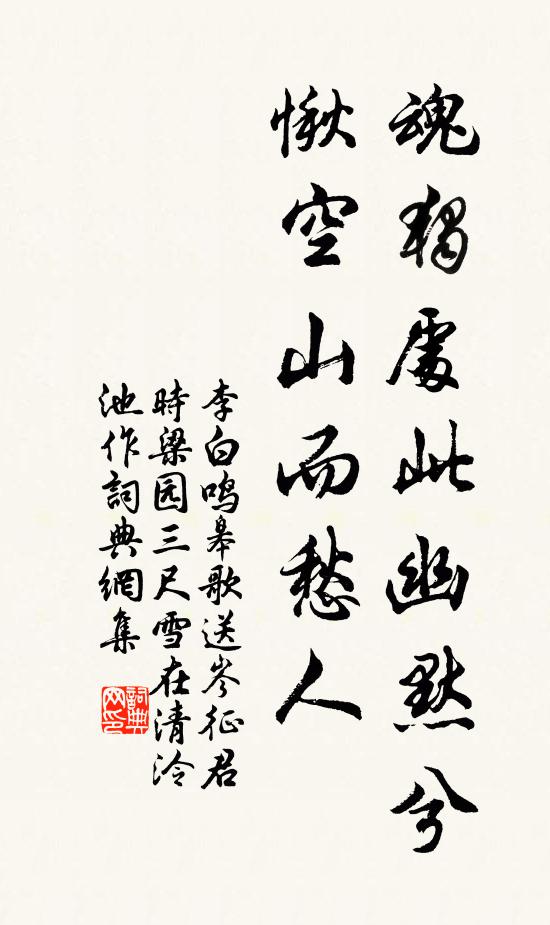 魂獨處此幽默兮
愀空山而愁人
李白鸣皋歌送岑征君
時梁园三尺雪在清泠
池作詞典網集
詞典
网印